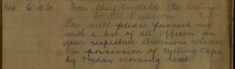 From Chief Constable
to all Divisions
Can you please furnish me
with a list of all officers in
your respective Divisions who are
in possession of cycling capes
by Friday morning next